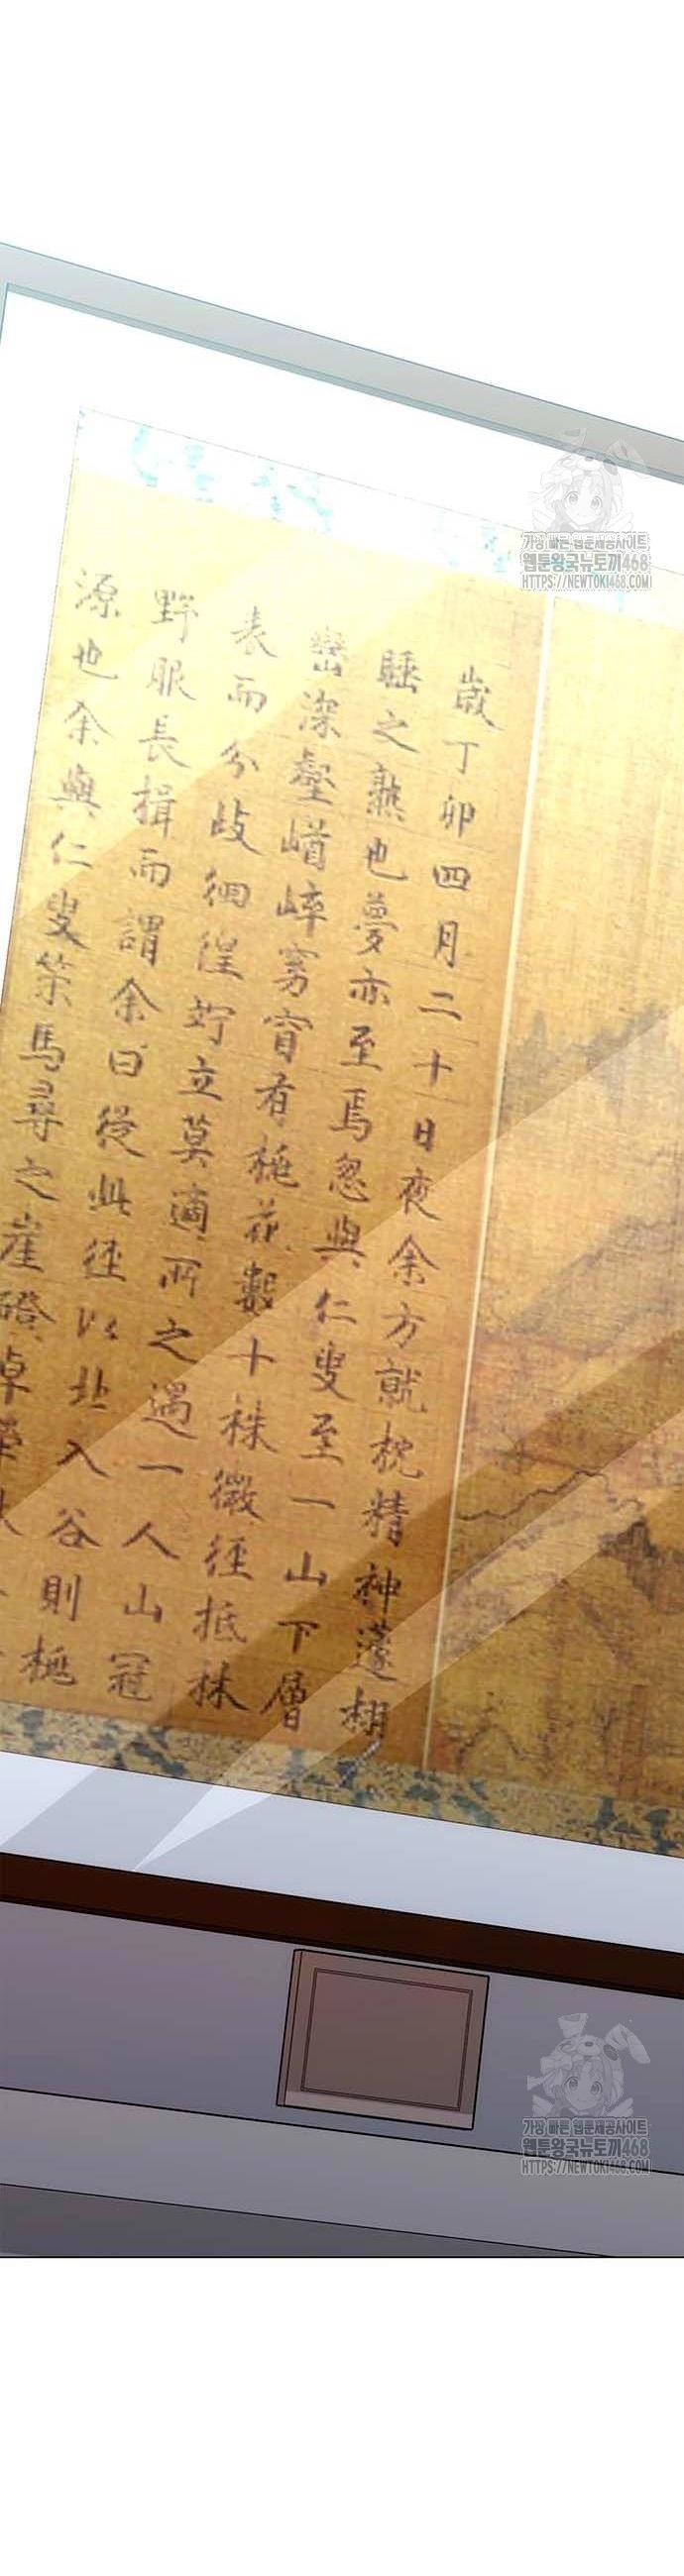 가장 빠른 웹툰제공사이트
웹툰왕국뉴토끼468
HTTPS://NEWTOKI468
歲丁卯四月二十日夜余方就枕精神蘧栩
睡之熟也夢亦至焉忽與仁叟至一山下層
巒深壑崷崒窈窅有桃花數十株微徑抵林
表而分歧徊徨竚立莫適所之遇一人山冠
野服長揖而謂余曰從此徑以北入谷則桃
源也余與仁叟策馬尋之崖磴卓犖
가장 빠른 웹툰제공사이트
웹툰왕국뉴토끼468
HTTPS://NEWTOKI468